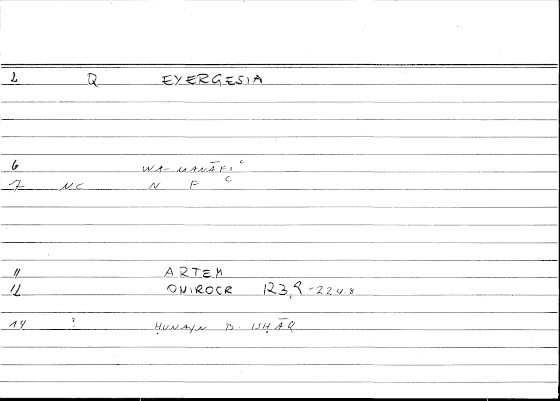 2 Q EYERGESIA
6 WA-MANĀFIᶜ
7 NC N F ᶜ
11 ARTEM
12 ONIROCR 123,9-224.8
14 ? ḤUNAYN B. ISḤĀQ